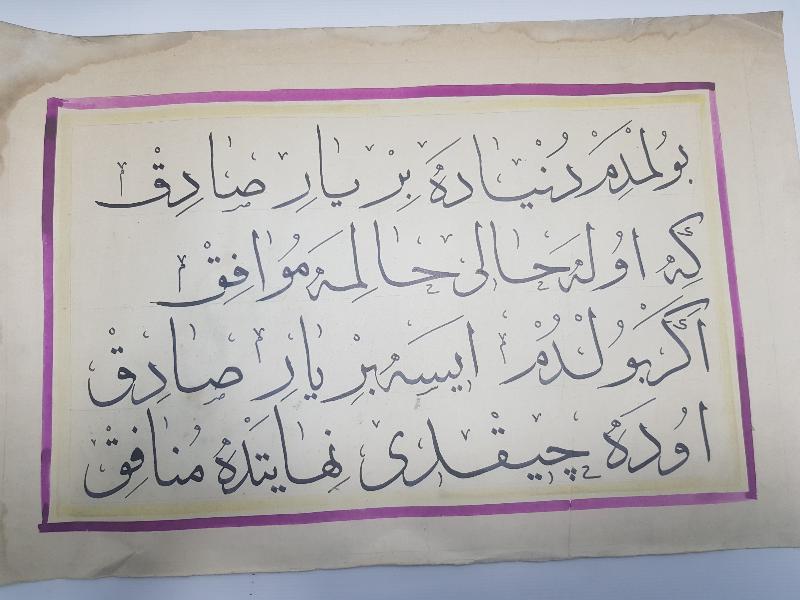 بُولمَدِمْ دُنْيَادَهْ بِرْ يَارِ صَادِقْ
كِهْ اوُلَهْ حَالى حَالِمَهْ مُوَافِقْ
اَكَرْ بُولْدُمْ ايسَهْ بِرْ يَارِ صَادِقْ
اوُدَهْ چيقْدى نِهَايَتْدَهْ مُنَافِقْ